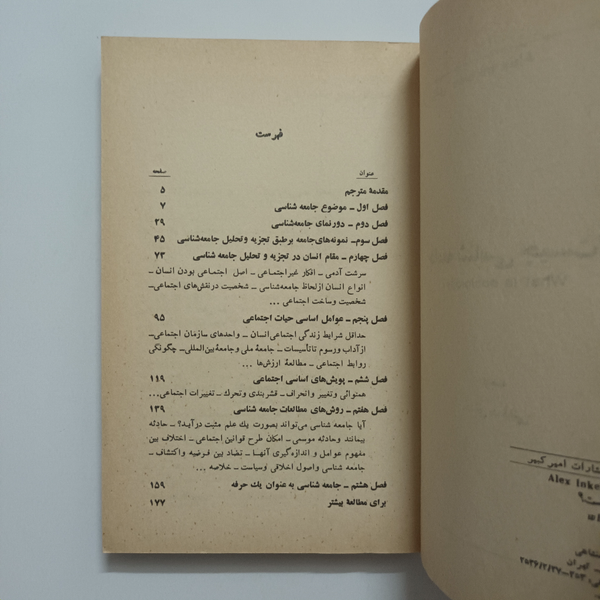 فهرست
عنوان صفحه
مقدمهٔ مترجم ۵
فصل اول ـ موضوع جامعه شناسی ۷
فصل دوم ـ دورنمای جامعه‌شناسی ۲۹
فصل سوم ـ نمونه‌های جامعه برطبق تجزیه وتحلیل جامعه‌شناسی ۴۵
فصل چهارم ـ مقام انسان در تجزیه و تحلیل جامعه شناسی ۷۳
سرشت آدمی ـ افکار غیراجتماعی ـ اصل اجتماعی بودن انسان ـ
انواع انسان ازلحاظ جامعه‌شناسی ـ شخصیت درنقش‌های اجتماعی ـ
شخصیت وساخت اجتماعی ...
فصل پنجم ـ عوامل اساسی حیات اجتماعی ۹۵
حداقل شرایط زندگی اجتماعی انسان ـ واحدهای سازمان اجتماعی ـ
ازآداب ورسوم تاتأسیسات ـ جامعهٔ ملی وجامعهٔ بین‌المللی ـ چگونگی
روابط اجتماعی ـ مطالعهٔ ارزش‌ها ...
فصل ششم ـ پویش‌های اساسی اجتماعی ۱۱۹
همنوائی وتغییر وانحراف ـ قشربندی وتحرك ـ تغییرات اجتماعی ...
فصل هفتم ـ روش‌های مطالعات جامعه شناسی ۱۳۹
آیا جامعه شناسی می‌تواند بصورت یك علم مثبت درآید؟ ـ حادثه
بیمانند وحادثه موسمی ـ امکان طرح قوانین اجتماعی ـ اختلاف بین
مفهوم عوامل و اندازه‌گیری آنها ـ تضاد بین فرضیه واکتشاف ـ
جامعه شناسی واصول اخلاقی وسیاست ـ خلاصه ...
فصل هشتم ـ جامعه شناسی به عنوان یك حرفه ۱۵۹
برای مطالعهٔ بیشتر ۱۷۷
امیرکبیر
Alex Inke
تهران